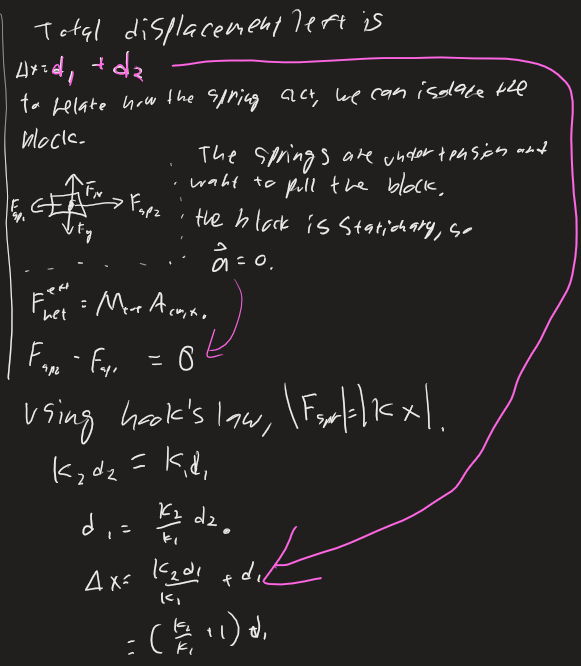 Total displacement left is
Δx = d₁ + d₂
to relate how the spring act, we can isolate the
block.
The springs are under tension and
want to pull the block.
the block is stationary, so
â = 0.
Fsp₁
F_N
Fsp₂
F_g
F_net^ext = M_tot A_cm,x.
F_sp₂ - F_sp₁ = 0
Using hook's law, |F_spr| = |K x|.
K₂ d₂ = K₁ d₁
d₁ = K₂/K₁ d₂.
Δx = K₂d₁/K₁ + d₁
= (K₂/K₁ + 1) d₁